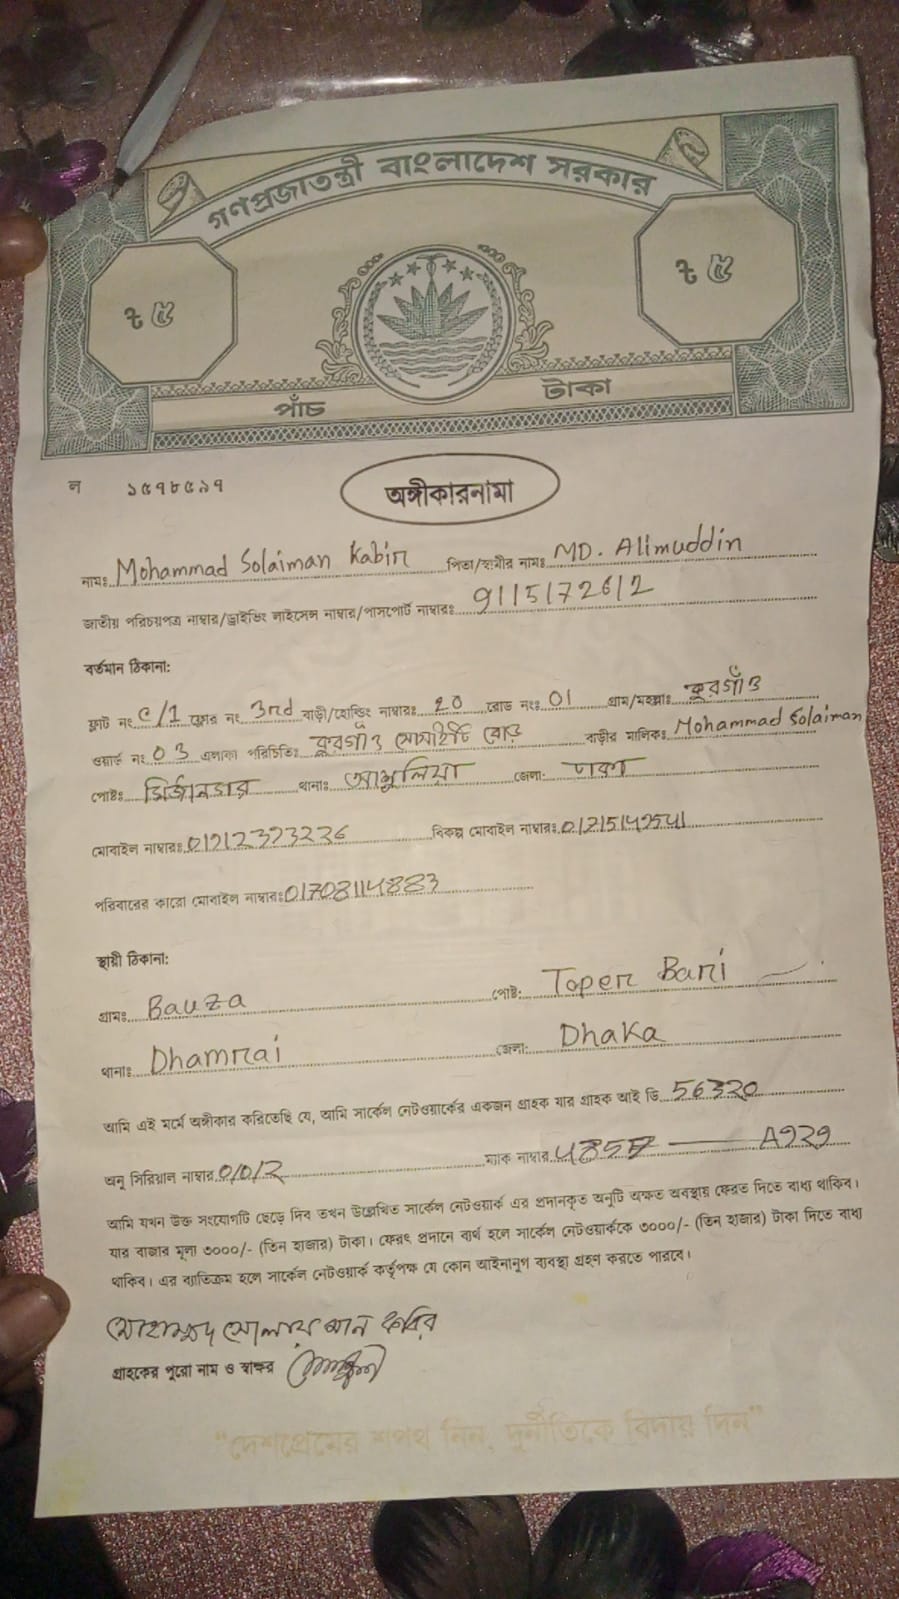 গণপ্রজাতন্ত্রী বাংলাদেশ সরকার
৳ ৫ ৳ ৫
পাঁচ টাকা
ল ১৫৭৮৫৯৭
অঙ্গীকারনামা
নামঃ Mohammad Solaiman Kabir পিতা/স্বামীর নামঃ MD. Alimuddin
জাতীয় পরিচয়পত্র নাম্বার/ড্রাইভিং লাইসেন্স নাম্বার/পাসপোর্ট নাম্বারঃ 9115172612
বর্তমান ঠিকানা:
ফ্লাট নং C/1 ফ্লোর নং 3rd বাড়ী/হোল্ডিং নাম্বারঃ 20 রোড নংঃ 01 গ্রাম/মহল্লাঃ কুরগাঁও
ওয়ার্ড নং 03 এলাকা পরিচিতিঃ কুরগাঁও সোসাইটি রোড বাড়ীর মালিকঃ Mohammad Solaiman
পোষ্টঃ মির্জানগর থানাঃ আশুলিয়া জেলা: ঢাকা
মোবাইল নাম্বারঃ বিকল্প মোবাইল নাম্বারঃ
পরিবারের কারো মোবাইল নাম্বারঃ 01708114883
স্থায়ী ঠিকানা:
গ্রামঃ Bauza পোষ্ট: Toper Bari
থানাঃ Dhamrai জেলা: Dhaka
আমি এই মর্মে অঙ্গীকার করিতেছি যে, আমি সার্কেল নেটওয়ার্কের একজন গ্রাহক যার গ্রাহক আই ডি 56320
অনু সিরিয়াল নাম্বার ম্যাক নাম্বার A929
আমি যখন উক্ত সংযোগটি ছেড়ে দিব তখন উল্লেখিত সার্কেল নেটওয়ার্ক এর প্রদানকৃত অনুটি অক্ষত অবস্থায় ফেরত দিতে বাধ্য থাকিব।
যার বাজার মূল্য ৩০০০/- (তিন হাজার) টাকা। ফেরৎ প্রদানে ব্যর্থ হলে সার্কেল নেটওয়ার্ককে ৩০০০/- (তিন হাজার) টাকা দিতে বাধ্য
থাকিব। এর ব্যতিক্রম হলে সার্কেল নেটওয়ার্ক কর্তৃপক্ষ যে কোন আইনানুগ ব্যবস্থা গ্রহণ করতে পারবে।
মোহাম্মদ সোলায়মান কবির
গ্রাহকের পুরো নাম ও স্বাক্ষর
“দেশপ্রেমের শপথ নিন, দুর্নীতিকে বিদায় দিন”